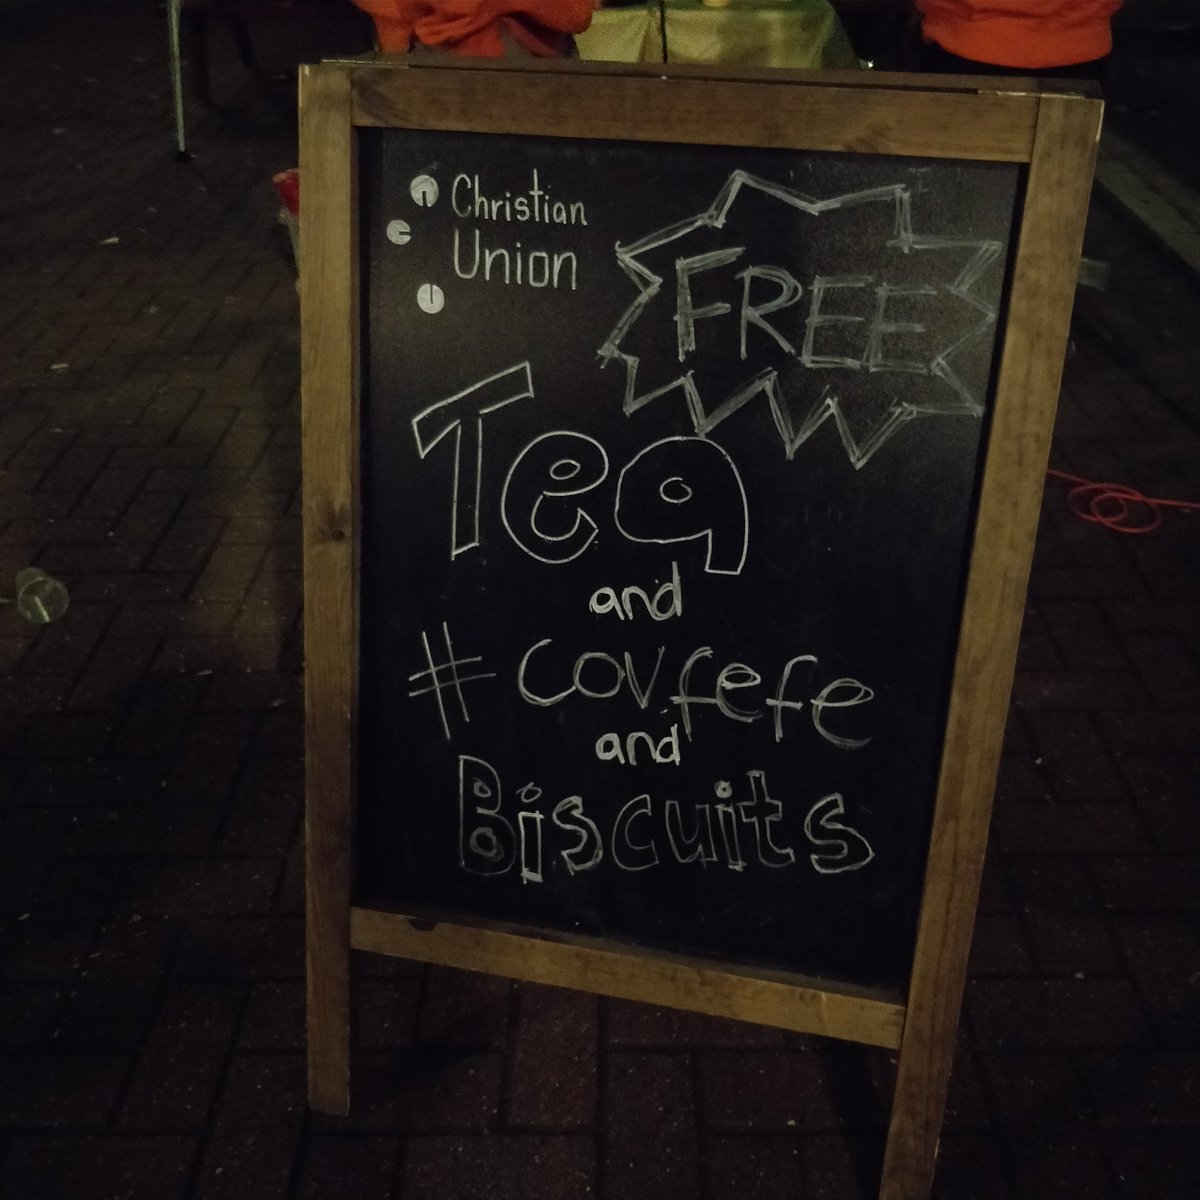 Christian
Union
FREE
Tea
and
#covfefe
and
Biscuits